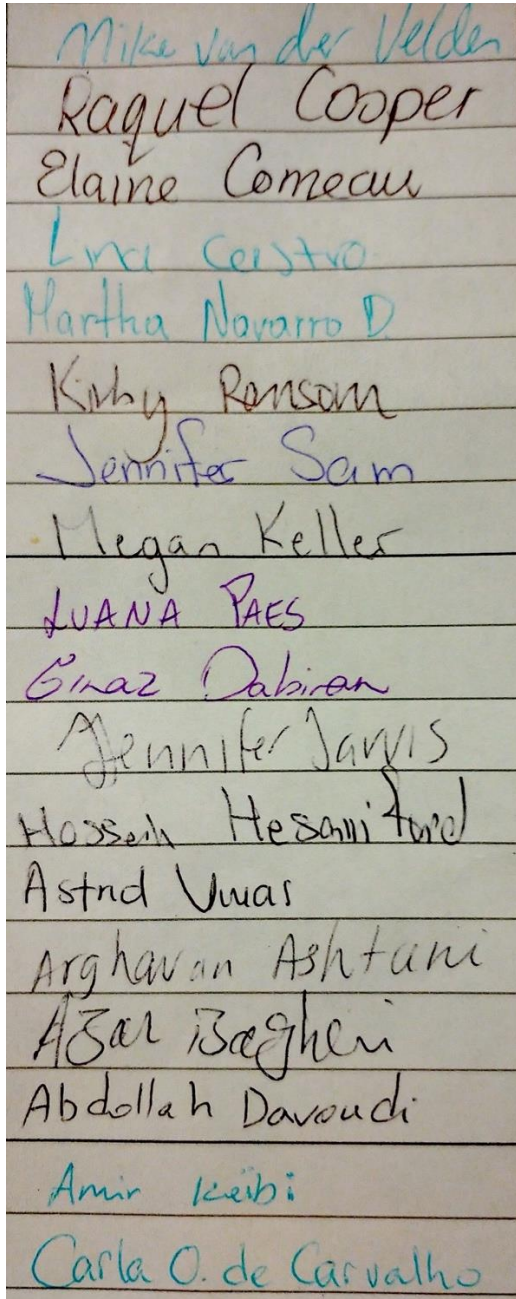 Mike van der Velden
Raquel Cooper
Elaine Comeau
Lina Castro
Martha Navarro D.
Kirby Ransom
Jennifer Sam
Megan Keller
LUANA PAES
Dabiran
Jennifer Jarvis
Hossein Hesami fard
Astrid
Arghavan Ashtani
Azar Bagheri
Abdollah Davoudi
Amir Keibi
Carla O. de Carvalho